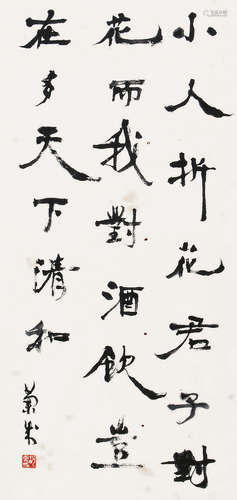 小人折花君子對
花而我對酒飲豈
在多天下清和
菊米